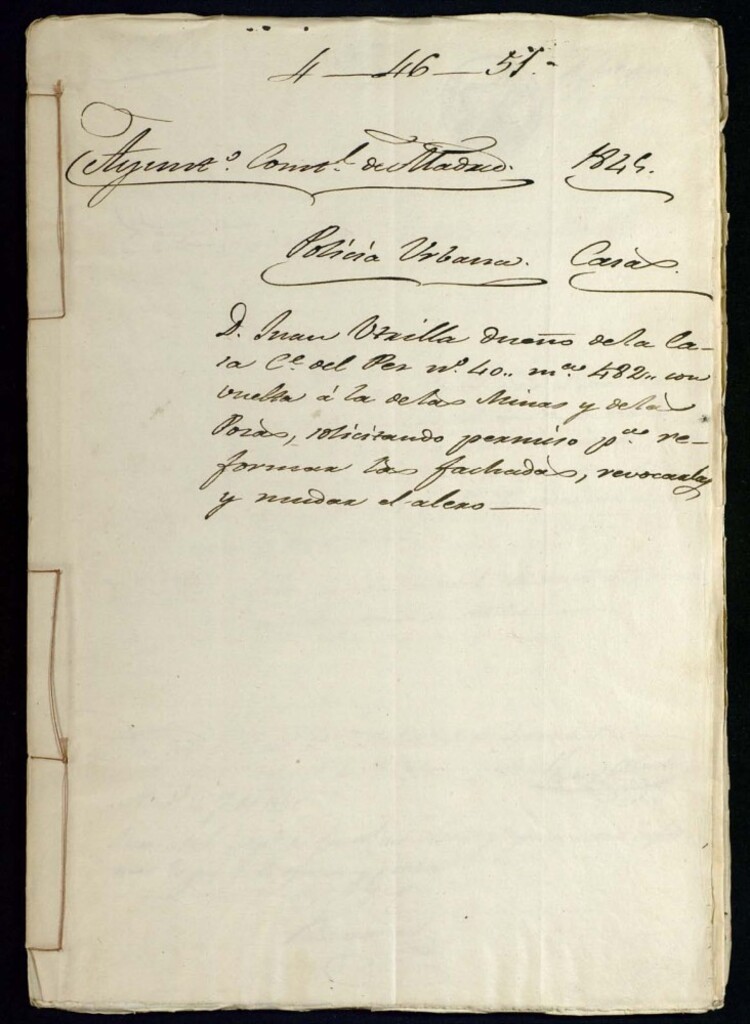 4 — 46 — 51.
Ayunt.º Const.l de Madrid. 184
Policia Urbana. Casas.
D. Juan Utrilla dueño de la Ca-
sa C.e del Pez nº 40.. m.na 482.. con
vuelta á la de las Minas y de las
Pozas, solicitando permiso p.ª re-
formar las fachadas, revocarlas
y mudar el alero —